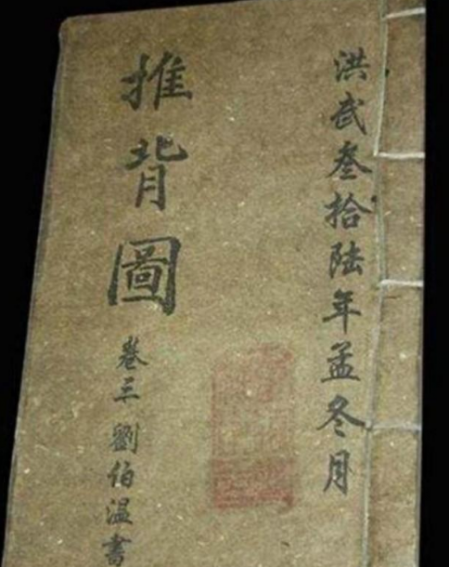 洪武叁拾陆年孟冬月
推背圖
卷三 劉伯温書